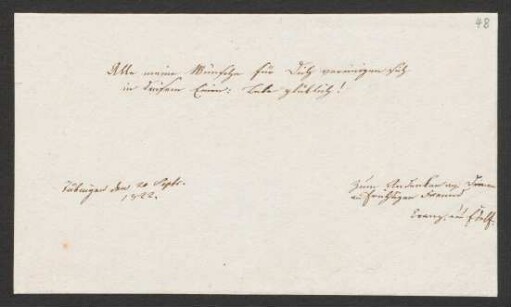 48
Alle meine Wünsche für Dich vereinigen sich
in diesem Einen: Lebe glücklich!
Tübingen den 20 Sept.
1822.
Zum Andenken an Deinen
aufrichtigen Freund